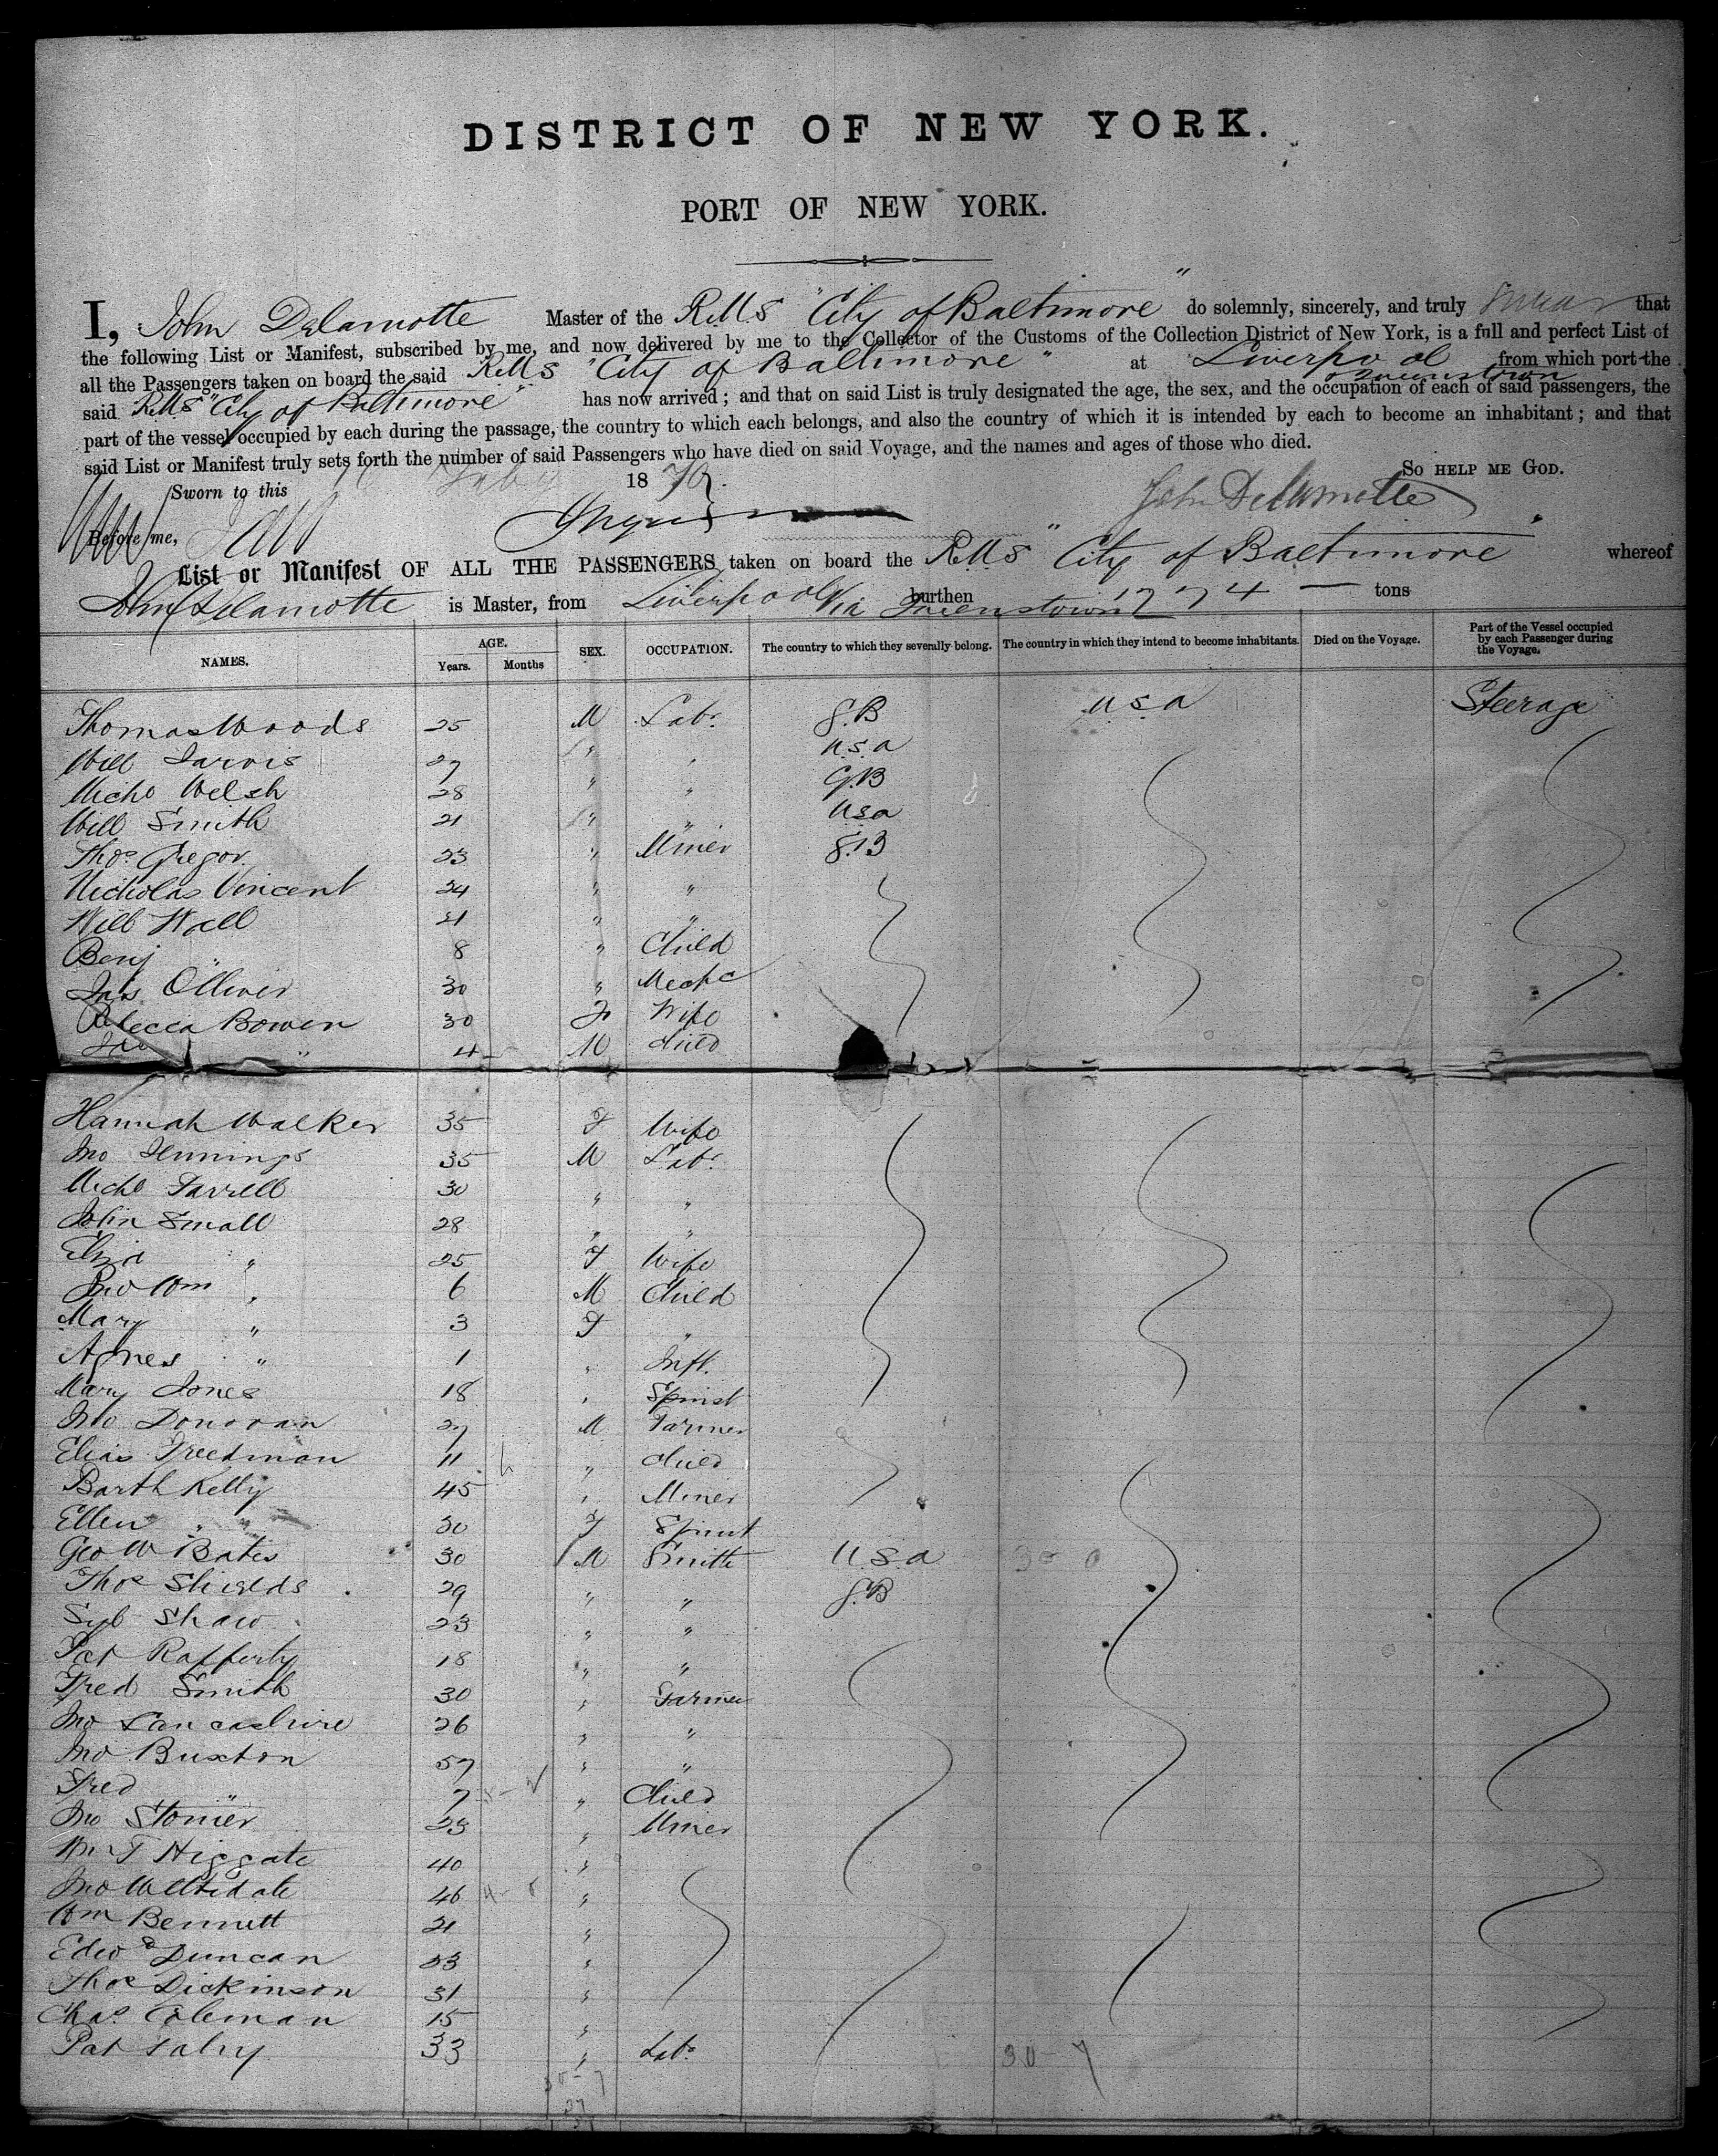 DISTRICT OF NEW YORK.
PORT OF NEW YORK.
I, John Delamotte Master of the RMS "City of Baltimore" do solemnly, sincerely, and truly swear that
the following List or Manifest, subscribed by me, and now delivered by me to the Collector of the Customs of the Collection District of New York, is a full and perfect List of
all the Passengers taken on board the said RMS "City of Baltimore" at Liverpool Queenstown from which port the
said RMS "City of Baltimore" has now arrived; and that on said List is truly designated the age, the sex, and the occupation of each of said passengers, the
part of the vessel occupied by each during the passage, the country to which each belongs, and also the country of which it is intended by each to become an inhabitant; and that
said List or Manifest truly sets forth the number of said Passengers who have died on said Voyage, and the names and ages of those who died.
So help me God.
Sworn to this 1870
John Delamotte
Before me,
List or Manifest OF ALL THE PASSENGERS taken on board the RMS "City of Baltimore" whereof
John Delamotte is Master, from Liverpool Via Queenstown burthen 1774 tons
NAMES. AGE. Years. Months SEX. OCCUPATION. The country to which they severally belong. The country in which they intend to become inhabitants. Died on the Voyage. Part of the Vessel occupied by each Passenger during the Voyage.
Thomas Woods 25 M Labr G.B U S A Steerage
Will Jarvis 27 " " U.S.A
Michl Welsh 28 " " G.B
Will Smith 21 " " USA
Thos Gregor 23 " Miner G.B
Nicholas Vincent 24 " "
Will Wall 21 " "
Benj " 8 " Child
Jas Olliver 30 " Mechc
Rebecca Bowen 30 F Wife
" 4 M Child
Hannah Walker 35 F Wife
Jno Jennings 35 M Labr
Michl Farrell 30 " "
John Small 28 " "
Eliza " 25 F Wife
Jno Wm " 6 M Child
Mary " 3 F "
Agnes " 1 " Inft.
Mary Jones 18 " Spinst
Jno Donovan 27 M Farmer
Elias Freedman 11 " Child
Barth Kelly 45 " Miner
Ellen " 30 F Spinst
Geo W Bates 30 M Smith U.S.A
Thos Shields 29 " " G.B
Syl Shaw 23 " "
Pat Rafferty 18 " "
Fred Smith 30 " Farmer
Jno Lancashire 26 " "
Jno Buxton 57 " "
Fred " 7 " Child
Jno Stonier 23 " Miner
Wm T Higgate 40 "
Jno 46 "
Wm Bennett 21 "
Edwd Duncan 33 "
Thos Dickinson 31 "
Chas Coleman 15 "
Pat 33 " Labr